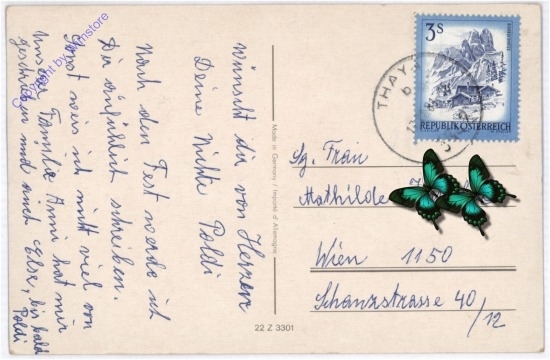 wünscht dir von Herzen
Deine Nichte Poldi
Nach dem Fest werde ich
Dir ausführlich schreiben.
Sonst weis ich nicht viel von
Unsere Familie Anni hat mir
geschrieben und auch Else, bis bald
Poldi
Copyright by
3s
REPUBLIK ÖSTERREICH
THAYA
Made in Germany / Importé d'Allemagne
22 Z 3301
Sg. Frau
Mathilde
Wien 1150
Schanzstrasse 40/12